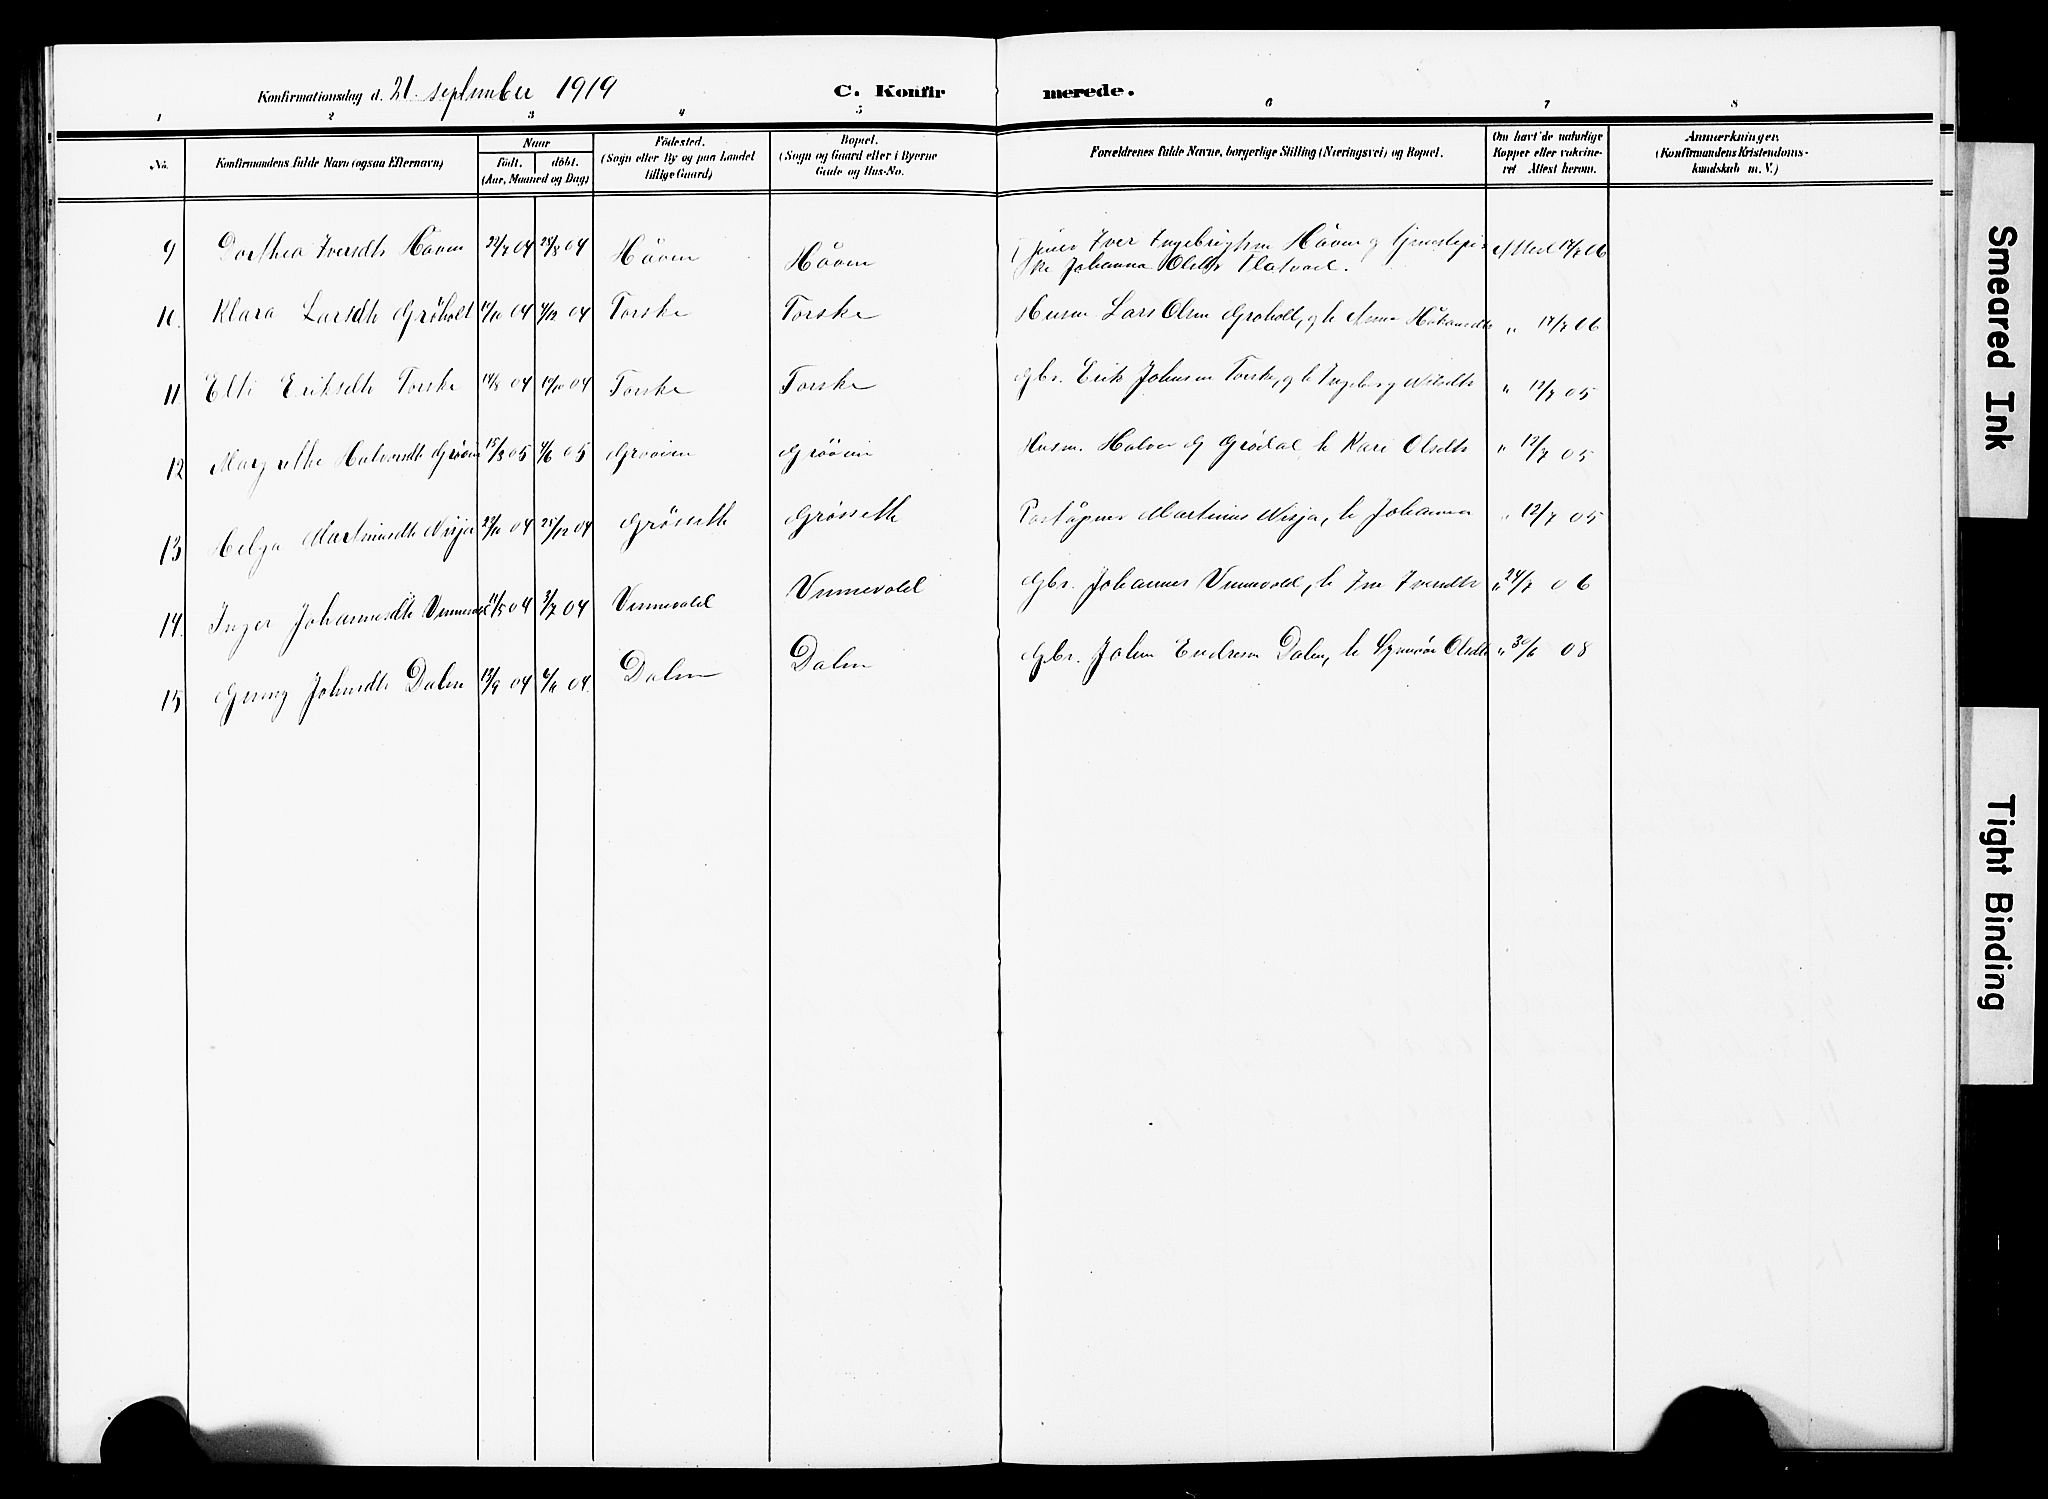 Konfirmationsdag d. 21. september 1919 C. Konfir merede.
1 2 3 4 5 6 7 8
No. Konfirmandens fulde Navn (ogsaa Efternavn) Naar Födt. döbt. (Aar, Maaned og Dag)
Födested. (Sogn eller By og paa Landet tillige Gaard)
Bopæl. (Sogn og Gaard eller i Byerne Gade og Hus-No.
Forældrenes fulde Navne, borgerlige Stilling (Næringsvei) og Bopæl.
Om havt de naturlige Kopper eller vakcineret Attest herom.
Anmærkninger. (Konfirmandens Kristendomskundskab m. V.)
9 Dorthea Iversdtr Håven 22/7 04 28/8 04 Håven Håven Iver Ingebrigtsen Håven og
Johanna Olsdtr Flatvad. Attest 17/7 06
10. Klara Larsdtr Gröholt 04 4/12 04 Torske Torske Husm. Lars Olsen Groholt, og h Anna Håkonsdtr " 17/7 06
11 Elti Eriksdtr Torske 14/8 04 04 Torske Torske Gbr. Erik Johnsen Torske, og h Ingeborg Nilsdtr " 12/7 05
12 Margrethe Halvorsdtr Gröven 15/3 05 4/6 05 Husm. Halvor G Grödal, h Kari Olsdtr " 12/7 05
13 Helga Martinusdtr Nisja 04 25/12 04 Grösseth Grösseth Poståpner Martinus Nisja, h Johanna " 12/7 05
14. Inger Johannesdtr Vinnevold 11/5 04 3/7 04 Vinnevold Vinnevold Gbr. Johannes Vinnevold, h Iversdtr " 24/7 06
15 Johnsdtr Dalen 13/9 04 04. Dalen Dalen Gbr. John Endresen Dalen, h Synnöve Olsdtr " 30/6 08
Smeared Ink
Tight Binding